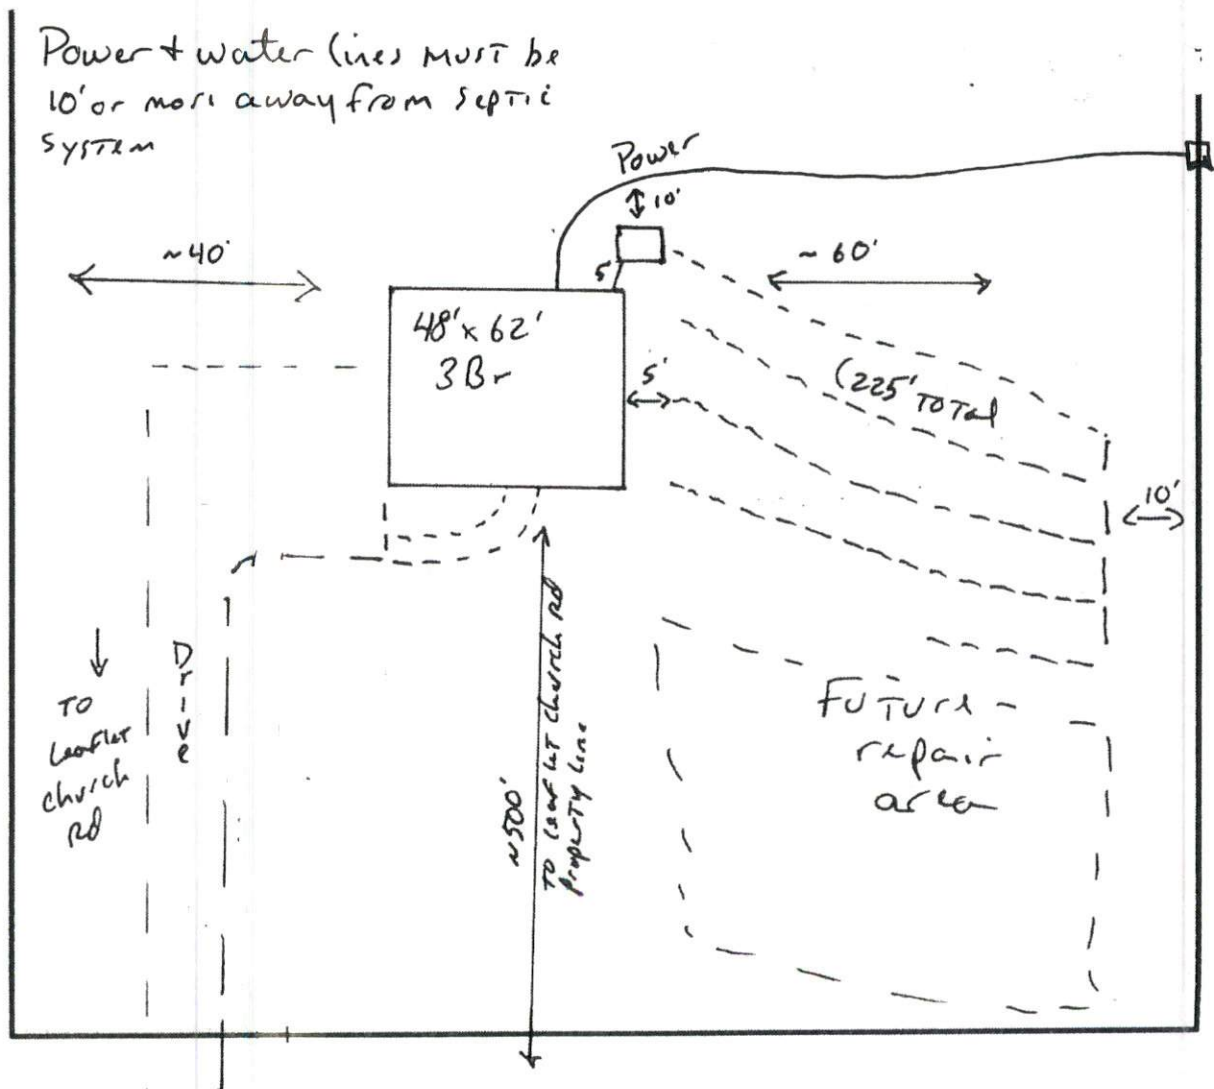 Power + water lines MUST be
10' or more away from septic
system
Power
10'
~40'
5'
~60'
48' x 62'
3Br
5'
(225' Total
10'
Drive
TO
Leaflet
church
Rd
~500'
TO Leaflet church Rd
Property Line
Future
repair
area